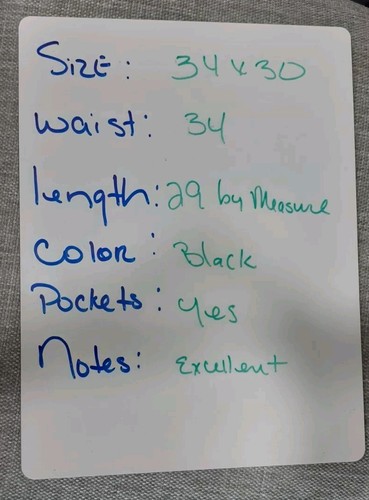 Size: 34 x 30
Waist: 34
Length: 29 by Measure
Color: Black
Pockets: Yes
Notes: Excellent